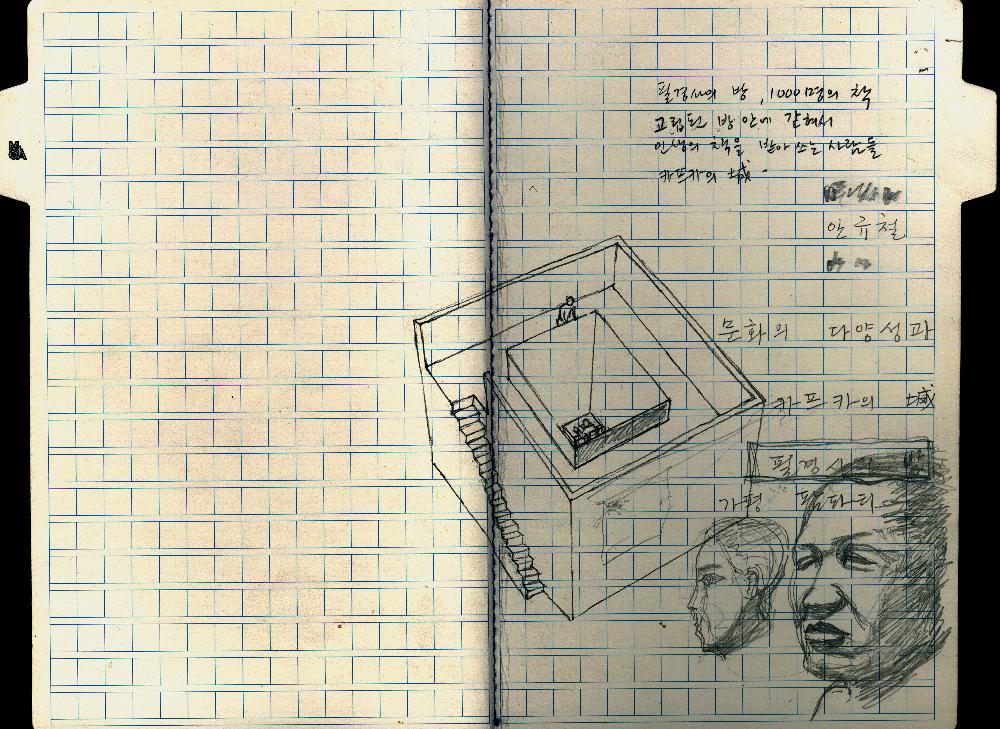 필경사의 방, 1000명의 책
고립된 방 안에 갇혀서
인생의 책을 받아 쓰는 사람들
카프카의 城
안규철
문화의 다양성과
카프카의 城
필경사의 방
가평